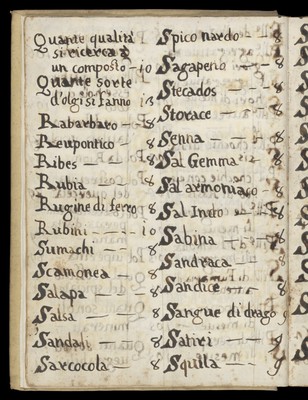 Quante qualità
si ricerca à
un composto — 10
Quante sorte
d'olgi si fanno 13
Rabarbaro — 8
Reupontico — 8
Ribes — 8
Rubia — 8
Rugine di ferro 8
Rubini — 10
Sumachi 8
Scamonea — 8
Salapa — 8
Salsa 8
Sandali — 8
Sarcocola — 8
Spico nardo — 8
Sagapeno — 8
Stecados — 8
Storace — 8
Senna — 8
Sal Gemma 8
Sal armoniaco 8
Sal Indo 8
Sabina — 8
Sandraca — 8
Sandice — 8
Sangue di drago 9
Satiri — 9
Squila — 9